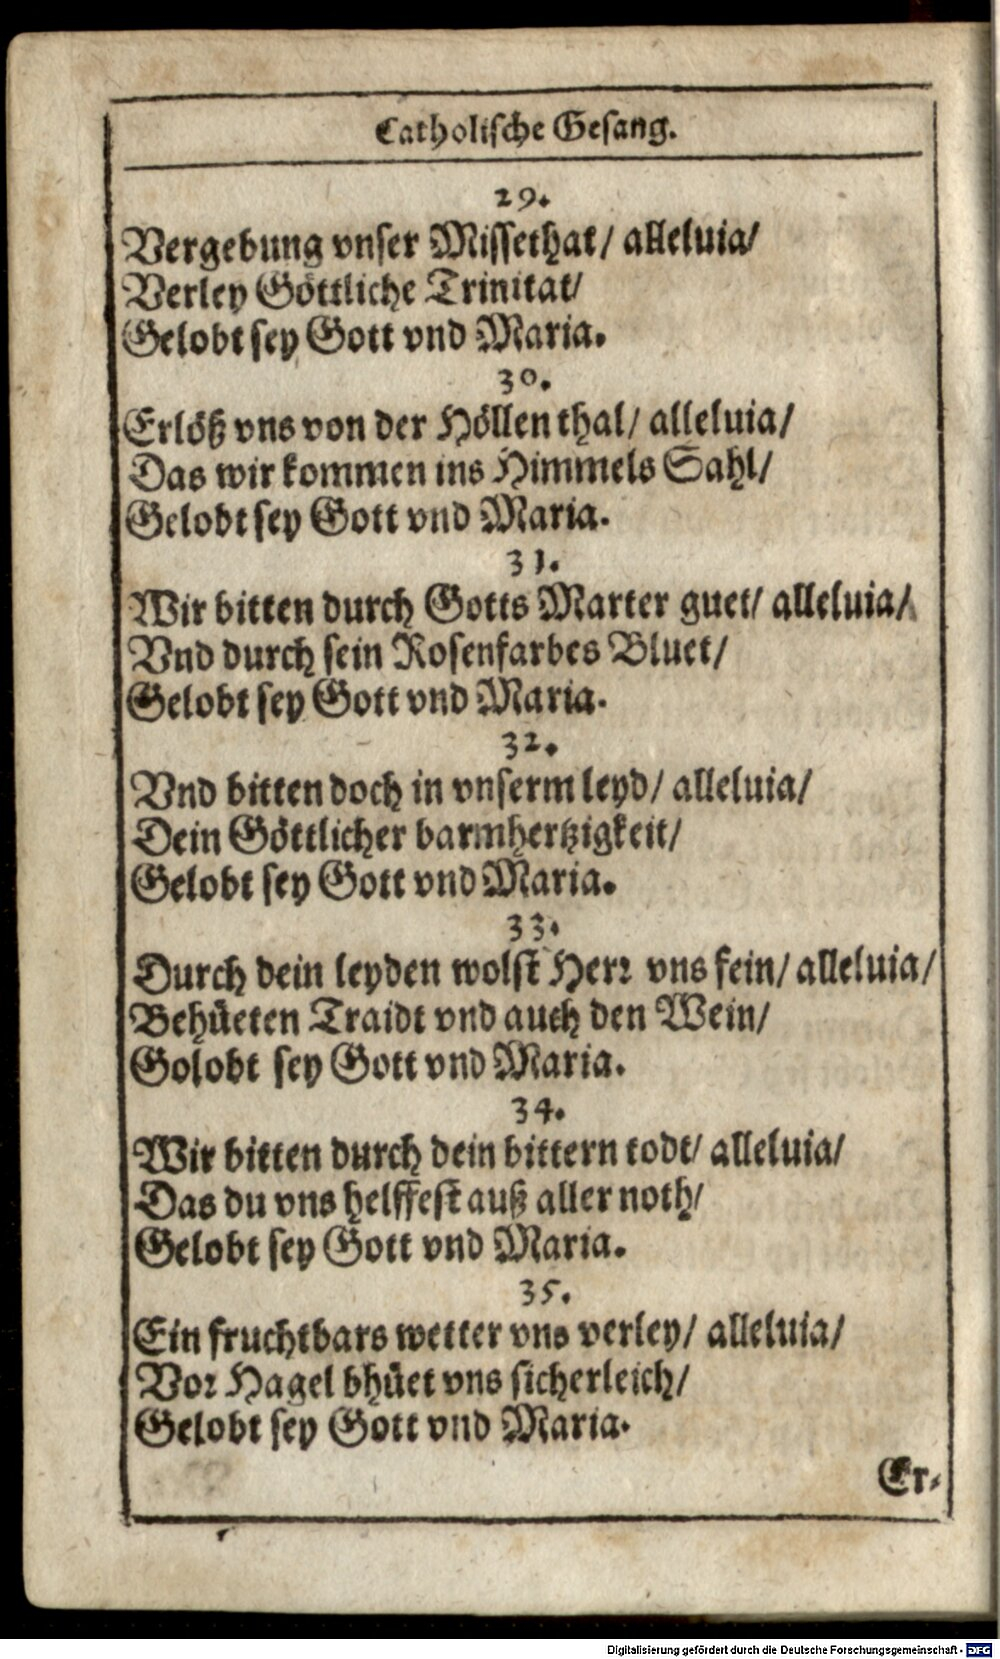 Catholische Gesang.
29.
Vergebung vnser Missethat/ alleluia/
Verley Göttliche Trinitat/
Gelobt sey Gott vnd Maria.
30.
Erlöß vns von der Höllen thal/ alleluia/
Das wir kommen ins Himmels Sahl/
Gelobt sey Gott vnd Maria.
31.
Wir bitten durch Gotts Marter guet/ alleluia/
Vnd durch sein Rosenfarbes Bluet/
Gelobt sey Gott vnd Maria.
32.
Vnd bitten doch in vnserm leyd/ alleluia/
Dein Göttlicher barmhertzigkeit/
Gelobt sey Gott vnd Maria.
33.
Durch dein leyden wolst Herr vns fein/ alleluia/
Behüeten Traidt vnd auch den Wein/
Golobt sey Gott vnd Maria.
34.
Wir bitten durch dein bittern todt/ alleluia/
Das du vns helffest auß aller noth/
Gelobt sey Gott vnd Maria.
35.
Ein fruchtbars wetter vns verley/ alleluia/
Vor Hagel bhüet vns sicherleich/
Gelobt sey Gott vnd Maria.
Er-
Digitalisierung gefördert durch die Deutsche Forschungsgemeinschaft - DFG